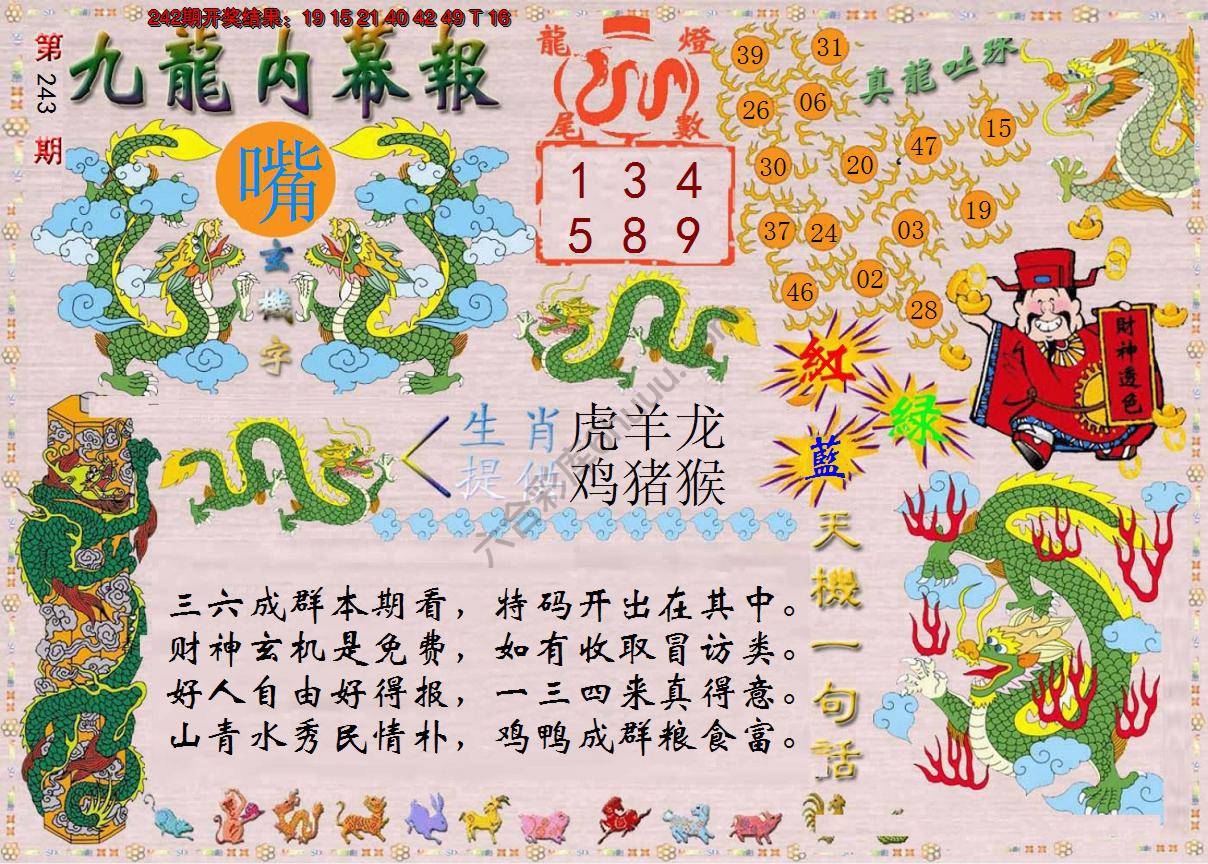 242期开奖结果：19 15 21 40 42 49 T 16
第243期
九龍内幕報
嘴
玄機字
龍燈
尾數
1 3 4
5 8 9
真龍吐珠
39 31
26 06
30 20 47 15
37 24 03 19
46 02 28
財神透色
紅
綠
藍
生肖 虎羊龙
提供 鸡猪猴
天機一句話
三六成群本期看，特码开出在其中。
财神玄机是免费，如有收取冒访类。
好人自由好得报，一三四来真得意。
山青水秀民情朴，鸡鸭成群粮食富。